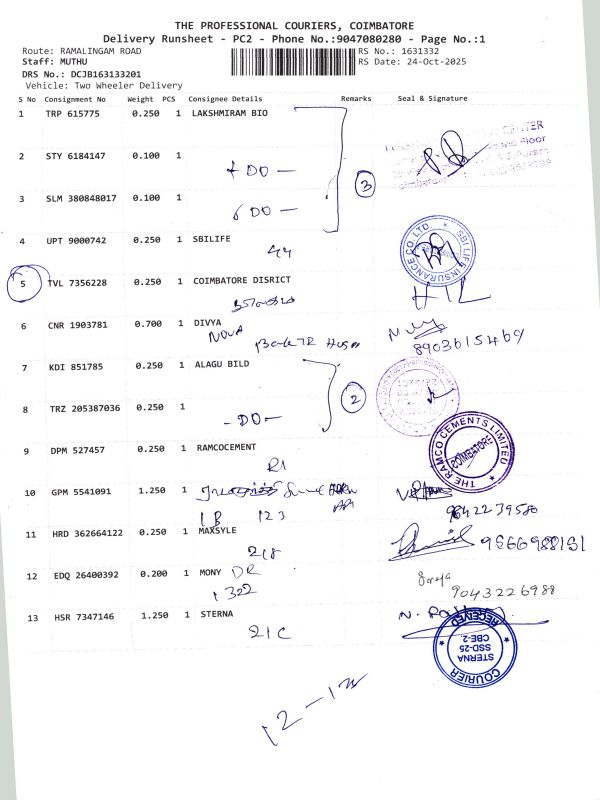 THE PROFESSIONAL COURIERS, COIMBATORE
Delivery Runsheet - PC2 - Phone No.:9047080280 - Page No.:1
Route: RAMALINGAM ROAD RS No.: 1631332
Staff: MUTHU RS Date: 24-Oct-2025
DRS No.: DCJB163133201
Vehicle: Two Wheeler Delivery
S No Consignment No Weight PCS Consignee Details Remarks Seal & Signature
1 TRP 615775 0.250 1 LAKSHMIRAM BIO
2 STY 6184147 0.100 1
DO —
3
3 SLM 380848017 0.100 1
DO —
4 UPT 9000742 0.250 1 SBILIFE
44
SBI LIFE INSURANCE CO. LTD.
5 TVL 7356228 0.250 1 COIMBATORE DISRICT
HIL
6 CNR 1903781 0.700 1 DIVYA
NOVA
8903615469
7 KDI 851785 0.250 1 ALAGU BILD
2
8 TRZ 205387036 0.250 1
- DO -
9 DPM 527457 0.250 1 RAMCOCEMENT
R1
THE RAMCO CEMENTS LIMITED
COIMBATORE
10 GPM 5541091 1.250 1
1B 123
9842239580
11 HRD 362664122 0.250 1 MAXSYLE
218
9566988151
12 EDQ 26400392 0.200 1 MONY DR
1322
9043226988
13 HSR 7347146 1.250 1 STERNA
21C
COURIER RECEIVED
STERNA
SSD-25
CBE-2